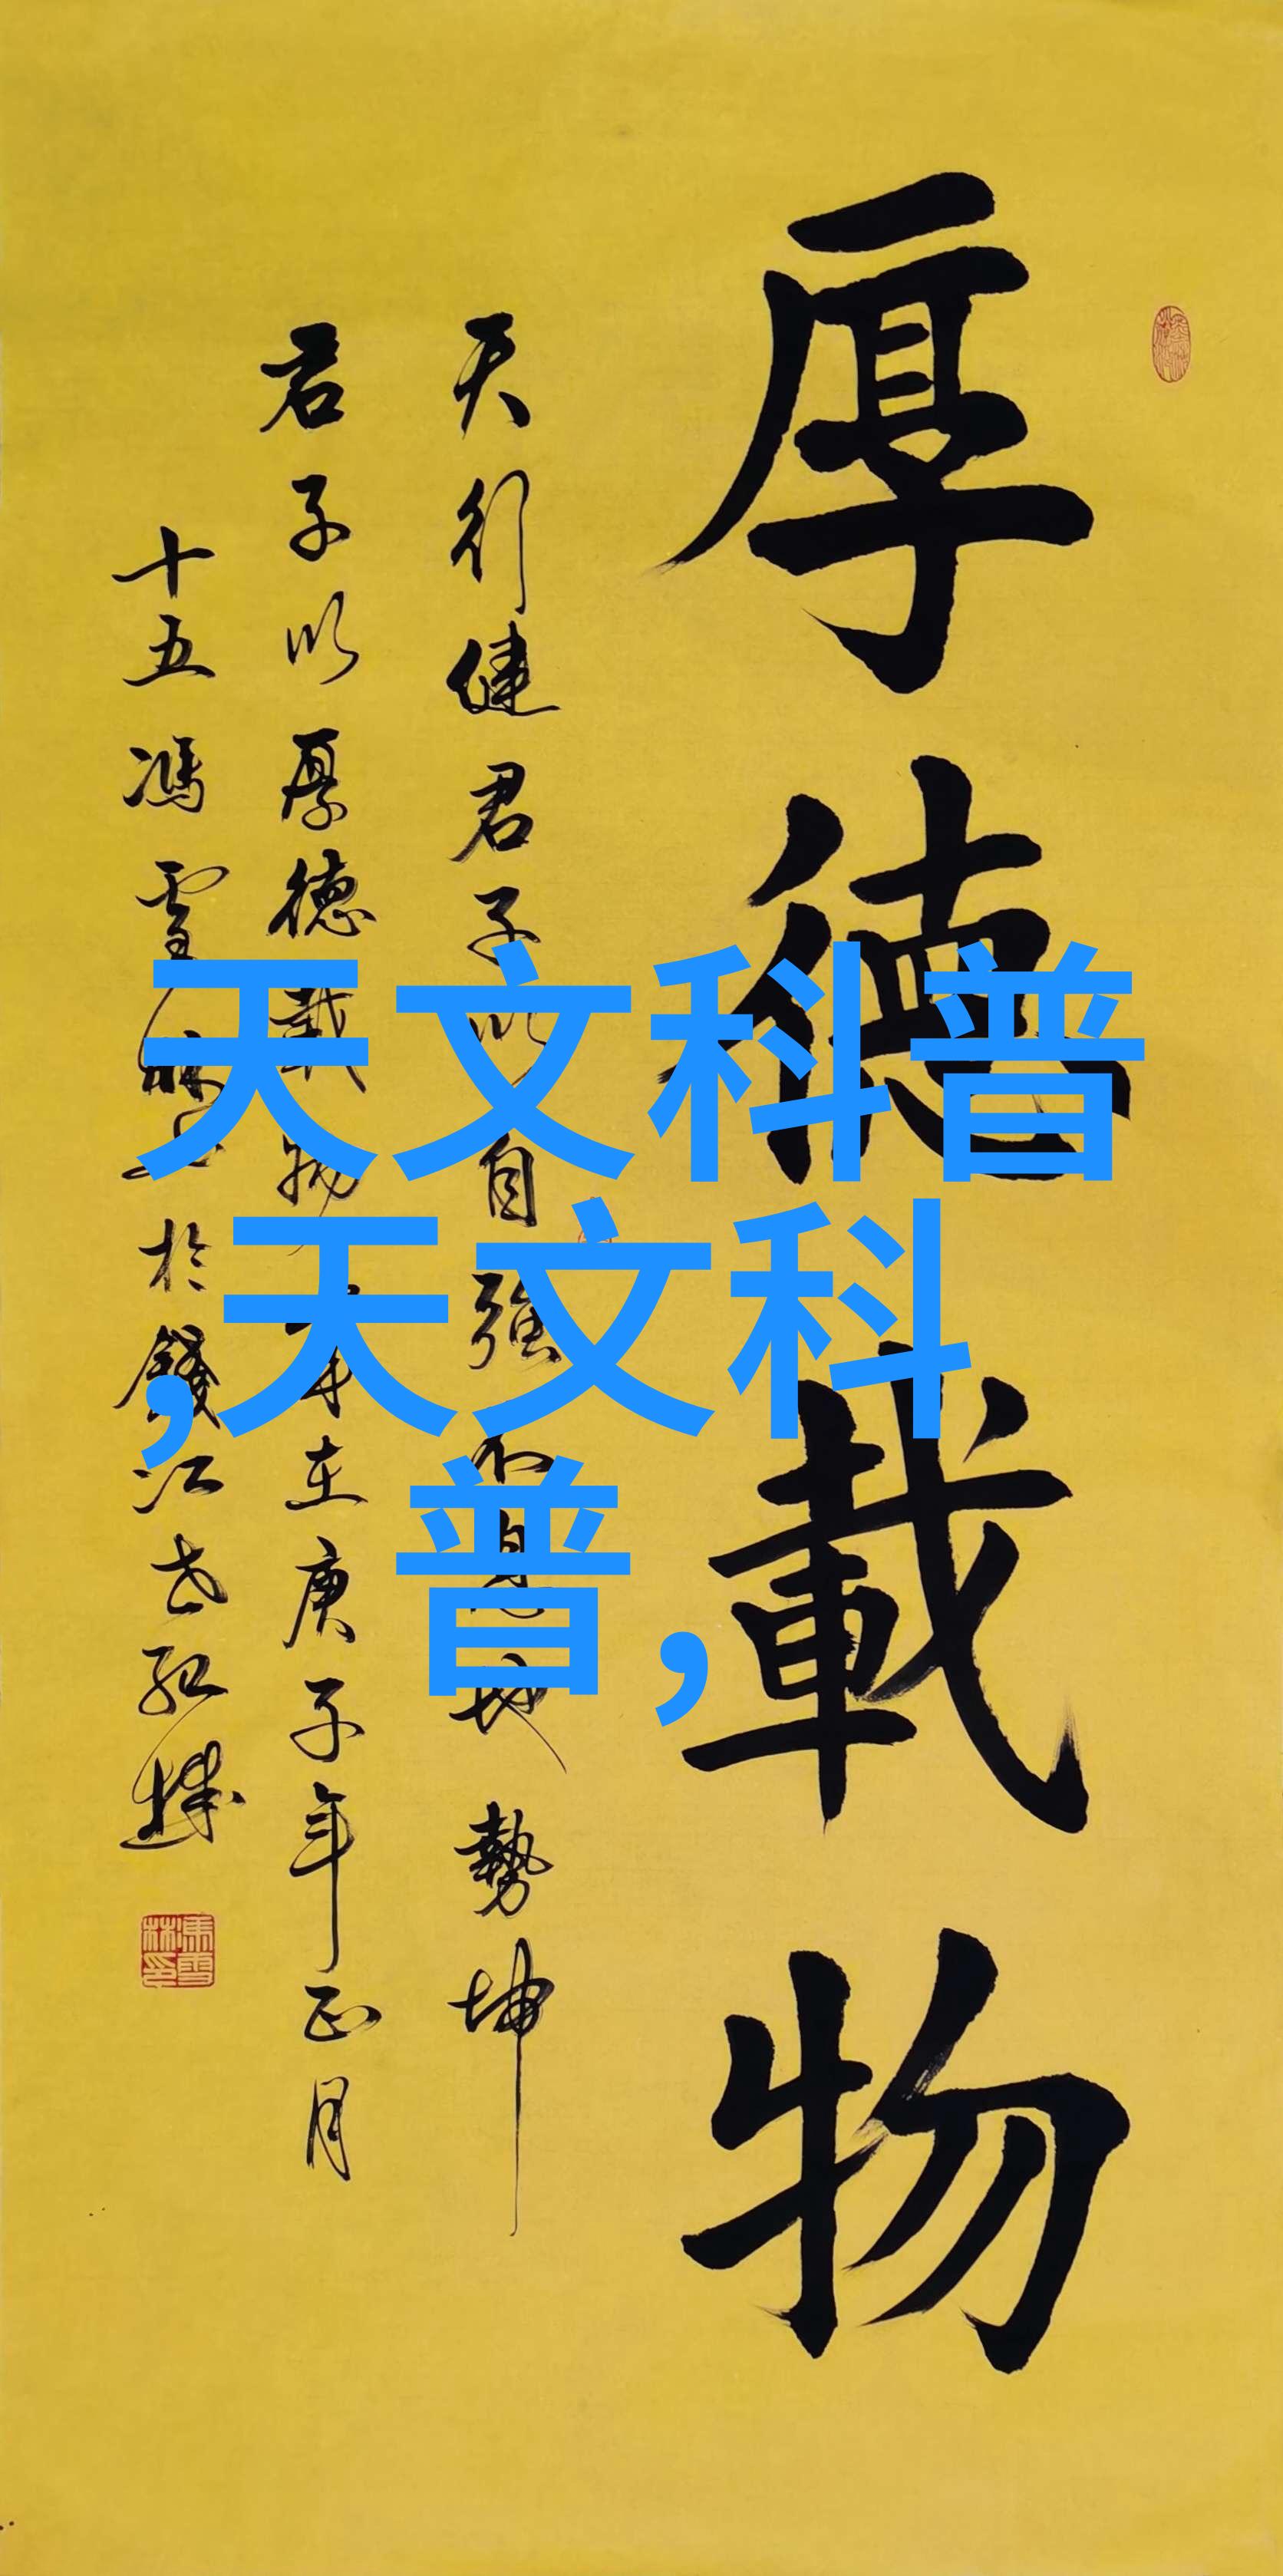 厚德載物
天行健君子以自強不息地勢坤
君子以厚德載物在庚子年正月
十五馮雪林書於錢江世紀城
天文科普
,天文科
普,